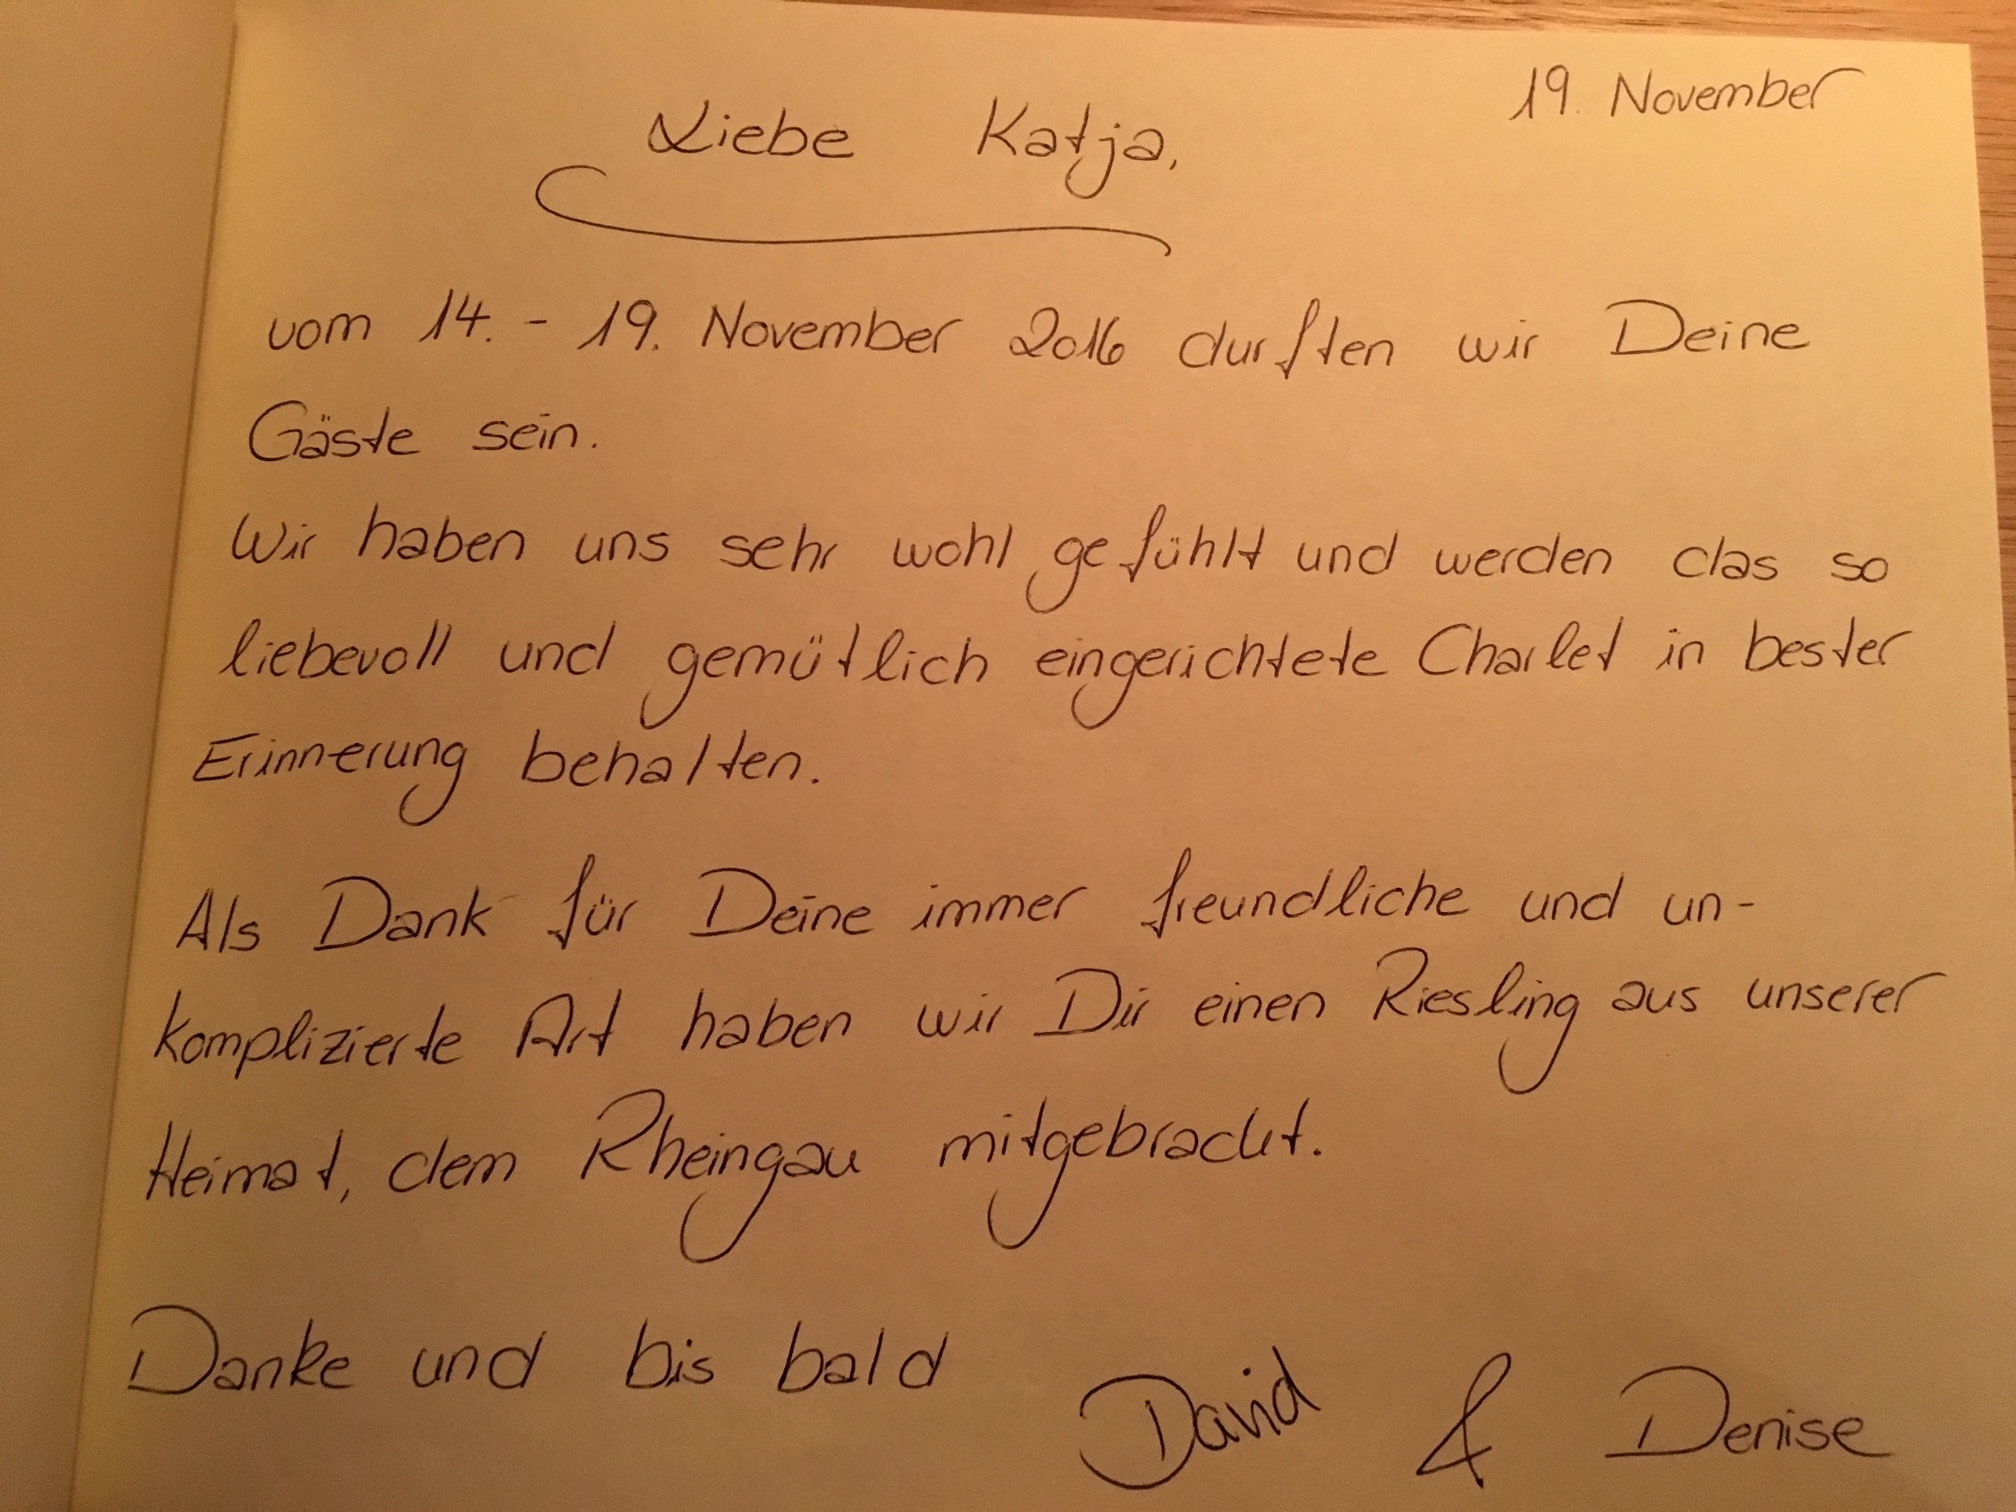 19. November
Liebe Katja,
vom 14. - 19. November 2016 durften wir Deine
Gäste sein.
Wir haben uns sehr wohl gefühlt und werden das so
liebevoll und gemütlich eingerichtete Charlet in bester
Erinnerung behalten.
Als Dank für Deine immer freundliche und un-
komplizierte Art haben wir Dir einen Riesling aus unserer
Heimat, dem Rheingau mitgebracht.
Danke und bis bald
David & Denise